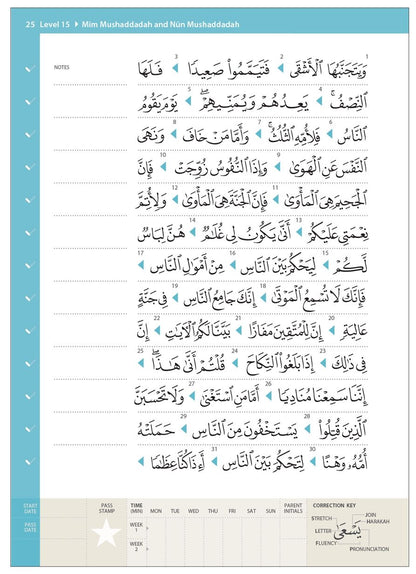 25 Level 15 ▸ Mīm Mushaddadah and Nūn Mushaddadah
NOTES
1 وَيَتَجَنَّبُهَا ٱلْأَشْقَى 2 فَتَيَمَّمُوا۟ صَعِيدًا 3 فَلَهَا
ٱلنِّصْفُ 4 يَعِدُهُمْ وَيُمَنِّيهِمْ 5 يَوْمَ يَقُومُ
ٱلنَّاسُ 6 فَلِأُمِّهِ ٱلثُّلُثُ 7 وَأَمَّا مَنْ خَافَ 8 وَنَهَى
ٱلنَّفْسَ عَنِ ٱلْهَوَىٰ 9 وَإِذَا ٱلنُّفُوسُ زُوِّجَتْ 10 فَإِنَّ
ٱلْجَحِيمَ هِىَ ٱلْمَأْوَىٰ 11 فَإِنَّ ٱلْجَنَّةَ هِىَ ٱلْمَأْوَىٰ 12 وَلِأُتِمَّ
نِعْمَتِى عَلَيْكُمْ 13 أَنَّىٰ يَكُونُ لِى غُلَٰمٌ 14 هُنَّ لِبَاسٌ
لَّكُمْ 15 لِيَحْكُمَ بَيْنَ ٱلنَّاسِ 16 مِنْ أَمْوَٰلِ ٱلنَّاسِ 17
فَإِنَّكَ لَا تُسْمِعُ ٱلْمَوْتَىٰ 18 إِنَّكَ جَامِعُ ٱلنَّاسِ 19 فِى جَنَّةٍ
عَالِيَةٍ 20 إِنَّ لِلْمُتَّقِينَ مَفَازًا 21 بَيَّنَّا لَكُمُ ٱلْءَايَٰتِ 22 إِنَّ
فِى ذَٰلِكَ 23 إِذَا بَلَغُوا۟ ٱلنِّكَاحَ 24 قُلْتُمْ أَنَّىٰ هَٰذَا 25
إِنَّنَا سَمِعْنَا مُنَادِيًا 26 أَمَّا مَنِ ٱسْتَغْنَىٰ 27 وَلَا تَحْسَبَنَّ
ٱلَّذِينَ قُتِلُوا۟ 28 يَسْتَخْفُونَ مِنَ ٱلنَّاسِ 29 حَمَلَتْهُ
أُمُّهُۥ وَهْنًا 30 لِتَحْكُمَ بَيْنَ ٱلنَّاسِ 31 أَءِذَا كُنَّا عِظَٰمًا
START DATE
PASS DATE
PASS STAMP
TIME (MIN) MON TUE WED THU FRI SAT SUN PARENT INITIALS
WEEK 1
WEEK 2
CORRECTION KEY
STRETCH
JOIN
HARAKAH
LETTER
يَسْعَىٰ
FLUENCY
PRONUNCIATION